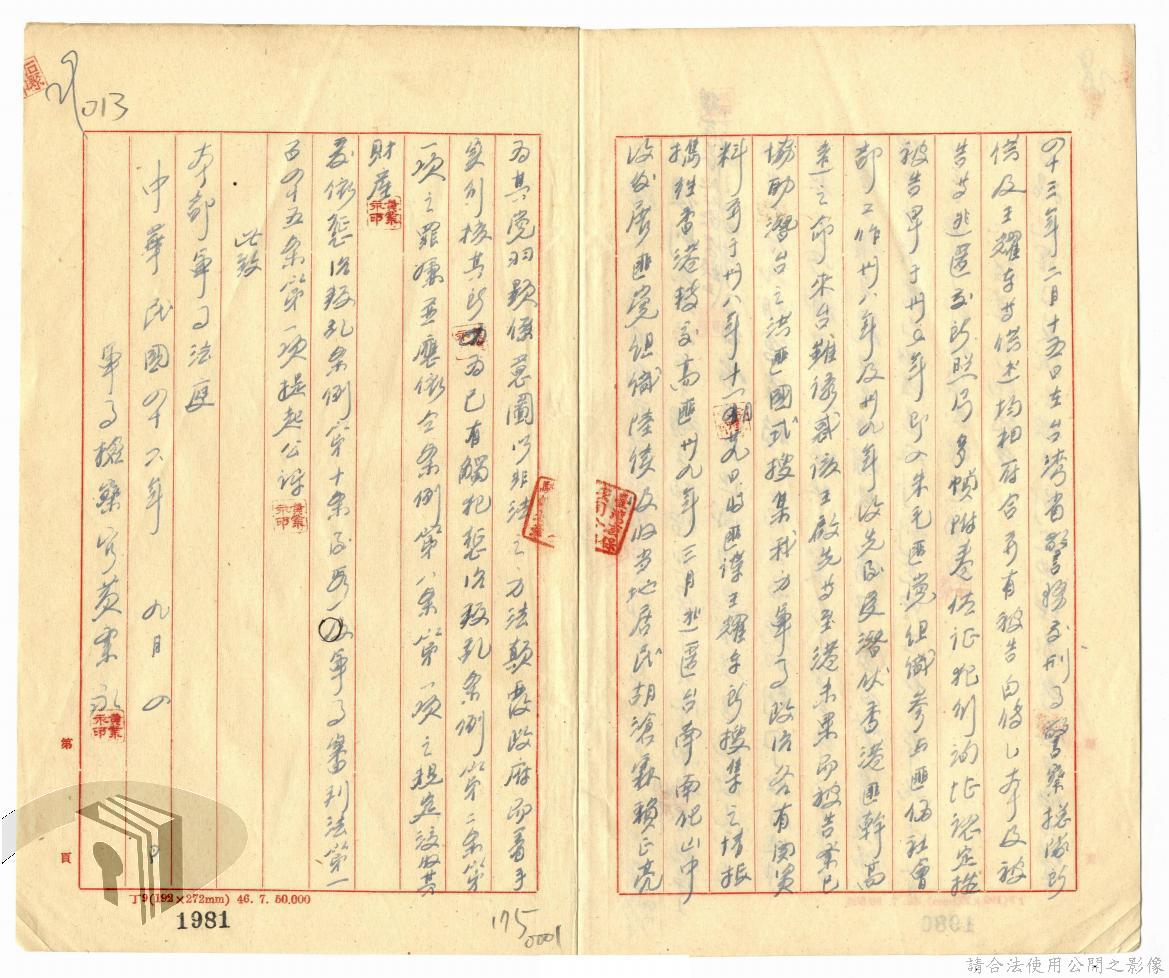 四十三年二月十五日在台灣省警務處刑事警察總隊所
供及王耀東等供述均相符合另有被告自傳乙本及被
告等逃匿處所照片多幀附卷佐證犯行洵堪認定按
被告早于卅七年即入朱毛匪黨組織參與匪偽社會
部工作卅八年及卅九年改先後受潛伏香港匪幹高
之命來台難誘惑該王啟先等至港未果即被告業已
協助潛台之洪匪國式搜集我方軍事政治各有關資
料並于卅八年十一月廿九日將匪諜王耀東所搜集之情報
攜往香港轉交高匪卅九年三月逃匿台南南化山中
後發展匪黨組織陸續吸收當地居民胡滄霖賴正亮
為其黨羽顯係意圖以非法之方法顛覆政府而著手
實行核其所為已有觸犯懲治叛亂條例第二條第
一項之罪嫌並應依同條例第八條第一項之規定沒收其
財產
爰依懲治叛亂條例第十條後段軍事審判法第一
百四十五條第一項提起公訴
此致
本部軍事法庭
中華民國四十六年 九月 四 日
軍事檢察官黃業永
黃業永印
013
第 頁
丁9(192×272mm) 46. 7. 50,000
1981
175
0001
請合法使用公開之影像